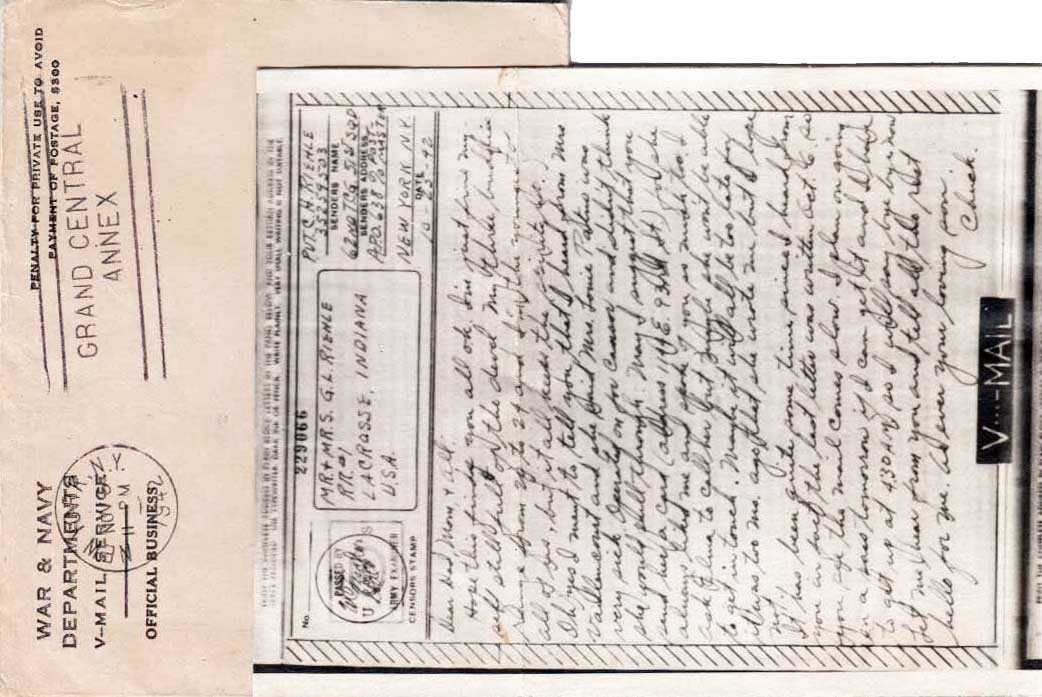 WAR & NAVY
DEPARTMENTS
V-MAIL SERVICE
OFFICIAL BUSINESS
N.Y.
NOV
11 PM
1942
PENALTY FOR PRIVATE USE TO AVOID
PAYMENT OF POSTAGE, $300
GRAND CENTRAL
ANNEX
No.
229066
PASSED BY
U S
ARMY EXAMINER
CENSORS STAMP
MR. & MRS. G. L. RIEHLE
RR #1
LACROSSE, INDIANA
U.S.A.
PVT C. H. RIEHLE
SENDERS NAME
62ND SQD
SENDERS ADDRESS
A.P.O. 638 % POST MASTER
NEW YORK N.Y.
DATE
10 - 23 - 42
Dear Dad, Mom & all.
Hope this finds you all ok. I'm just fine my
self still full of the devil. My three buddies
range from 29 to 24 and I'm the youngest
all of ours, but it all adds the
Oh yes I want to tell you that I heard from Mrs
Vallencourt and she said Mrs Louie Patens was
very sick. Operated on for cancer and didn't think
she would pull through. May I suggest that you
send her a card (address 1149 E. 93rd St) for she
always liked me and you so much too. I
ask Alma to call her but I hope she won't be able
to get in touch. Maybe it will all be too late to say
it was two mo. ago that she wrote me but I hope
not.
It has been quite some time since I heard from
you in fact the last letter was written Oct 10 so
you see the mail comes slow. I plan on going
on a pass tomorrow if I can get it and I have
to get up at 4:30 A.M. so I will say bye bye now
Let me hear from you and tell all the rest
hello for me. As ever your loving son.
Chick.
V···—MAIL